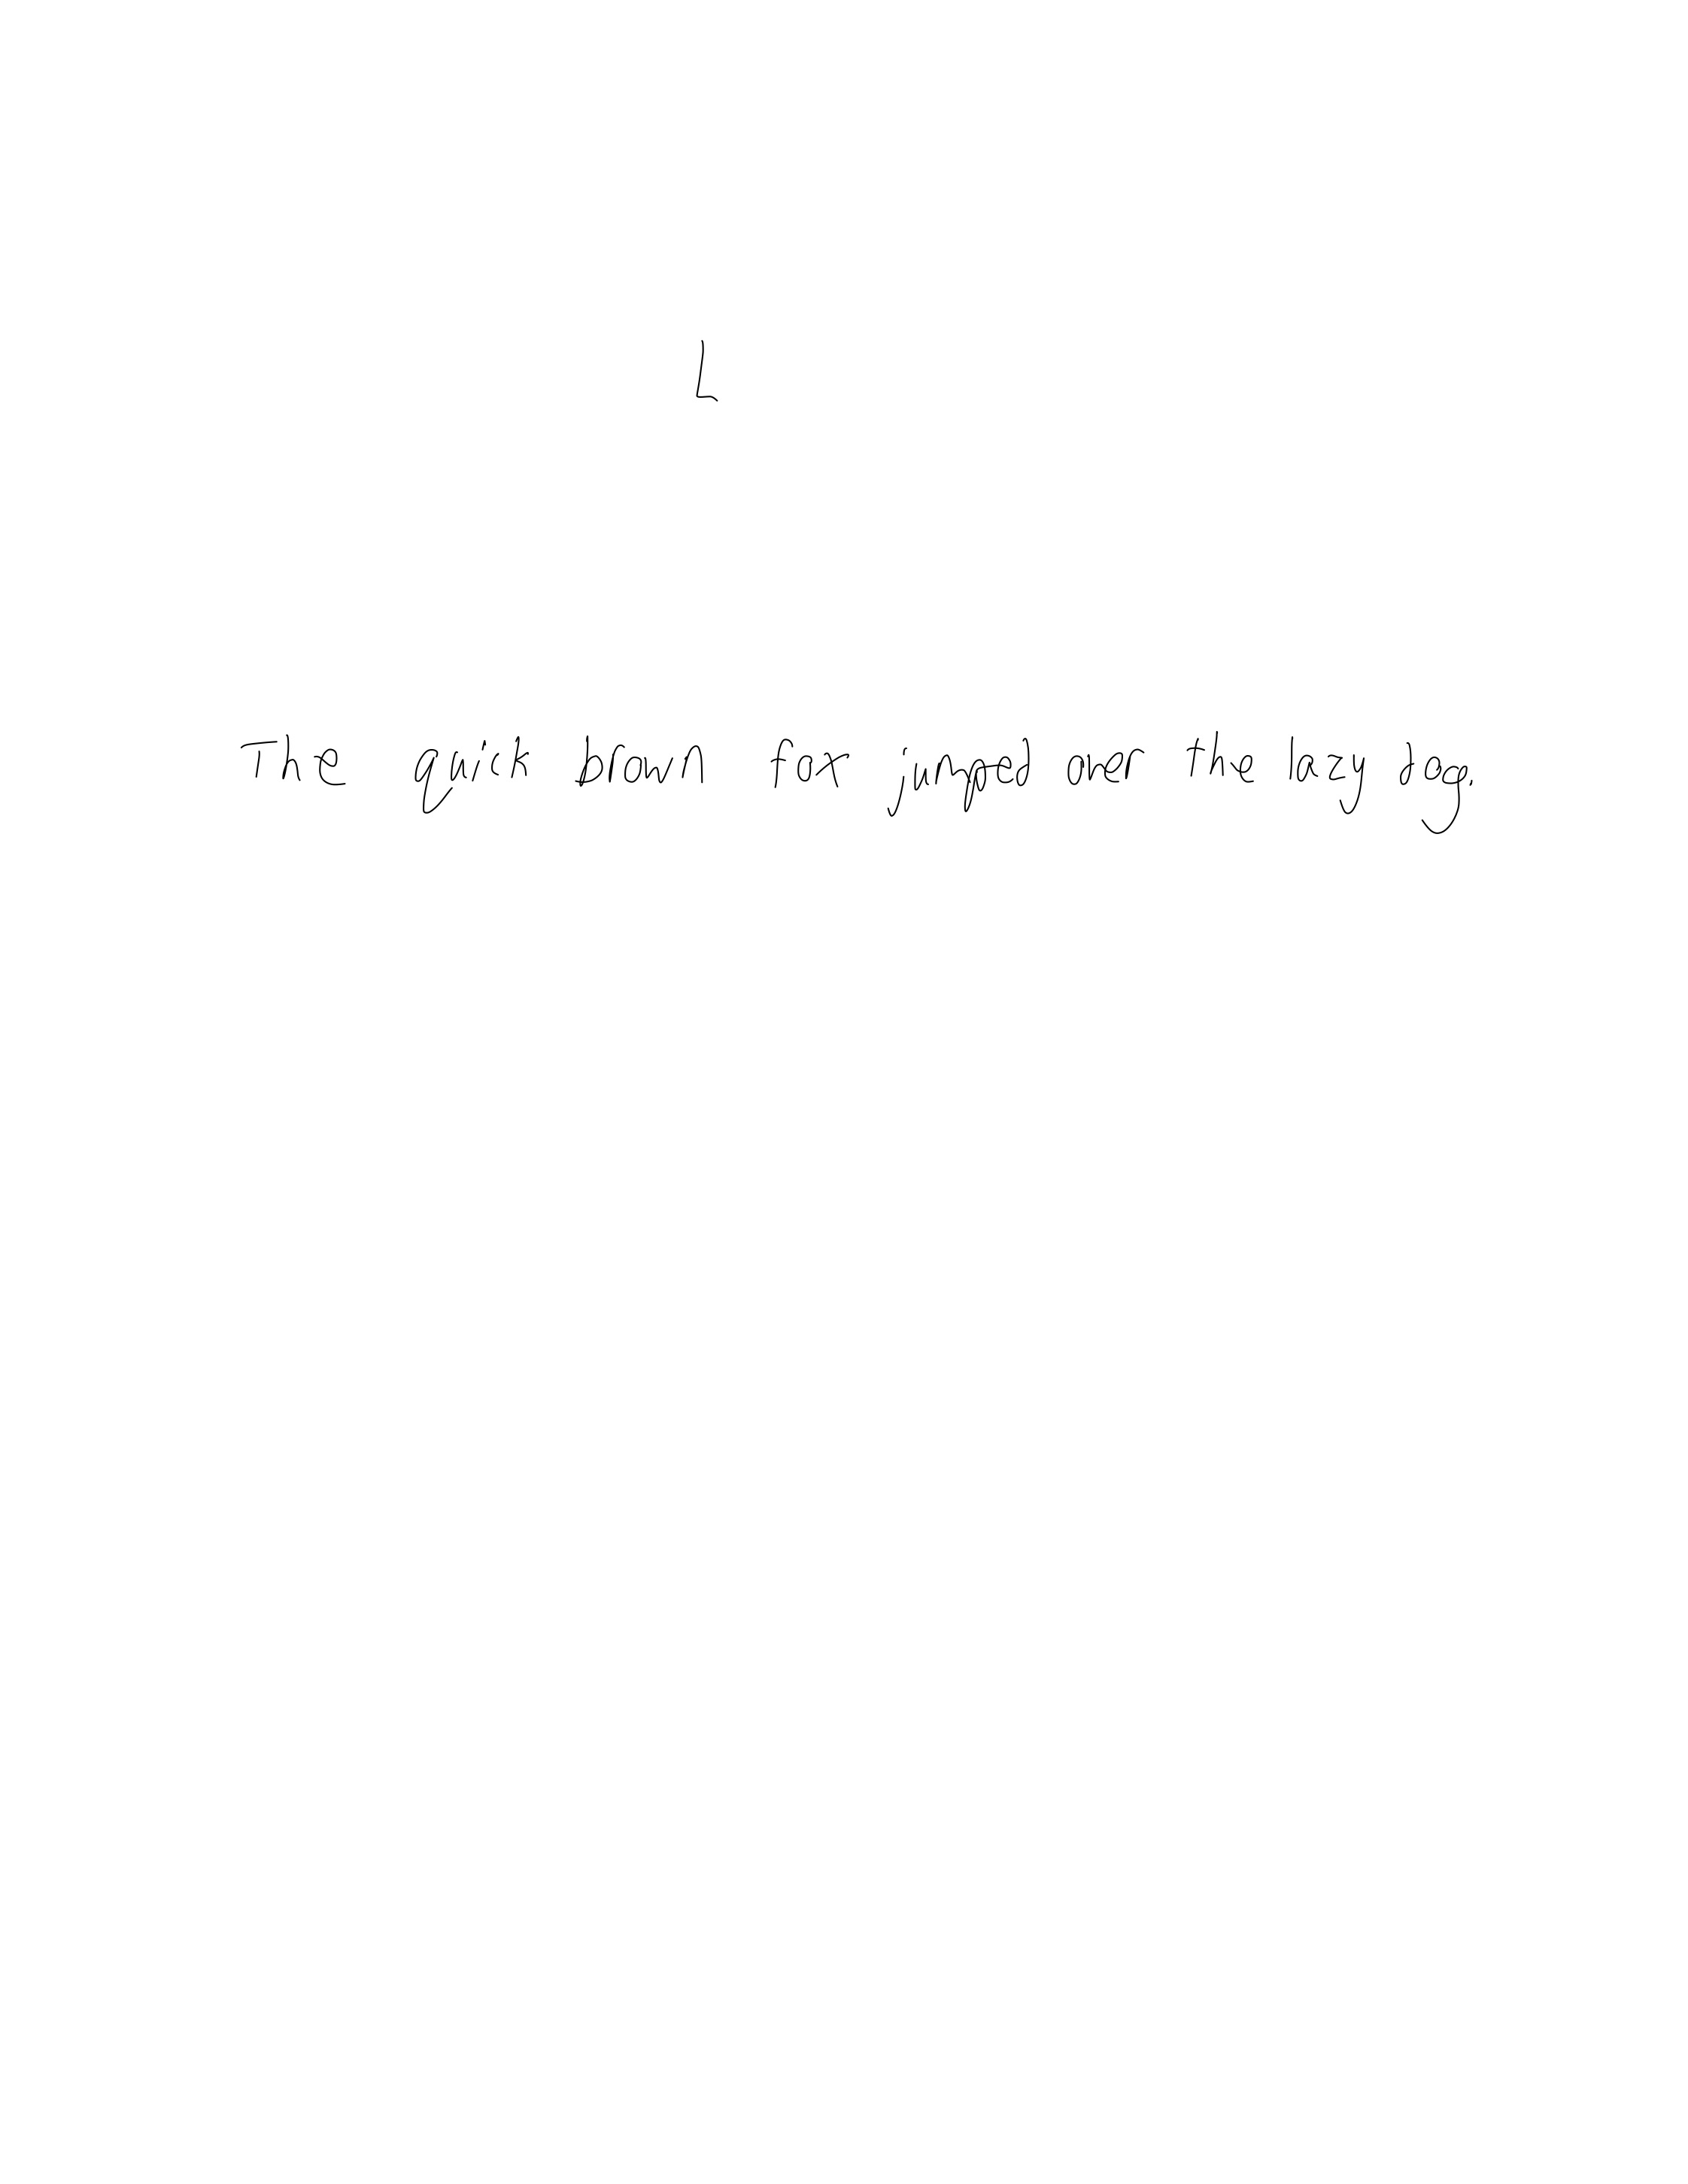 L
The quick brown fox jumped over the lazy dog.